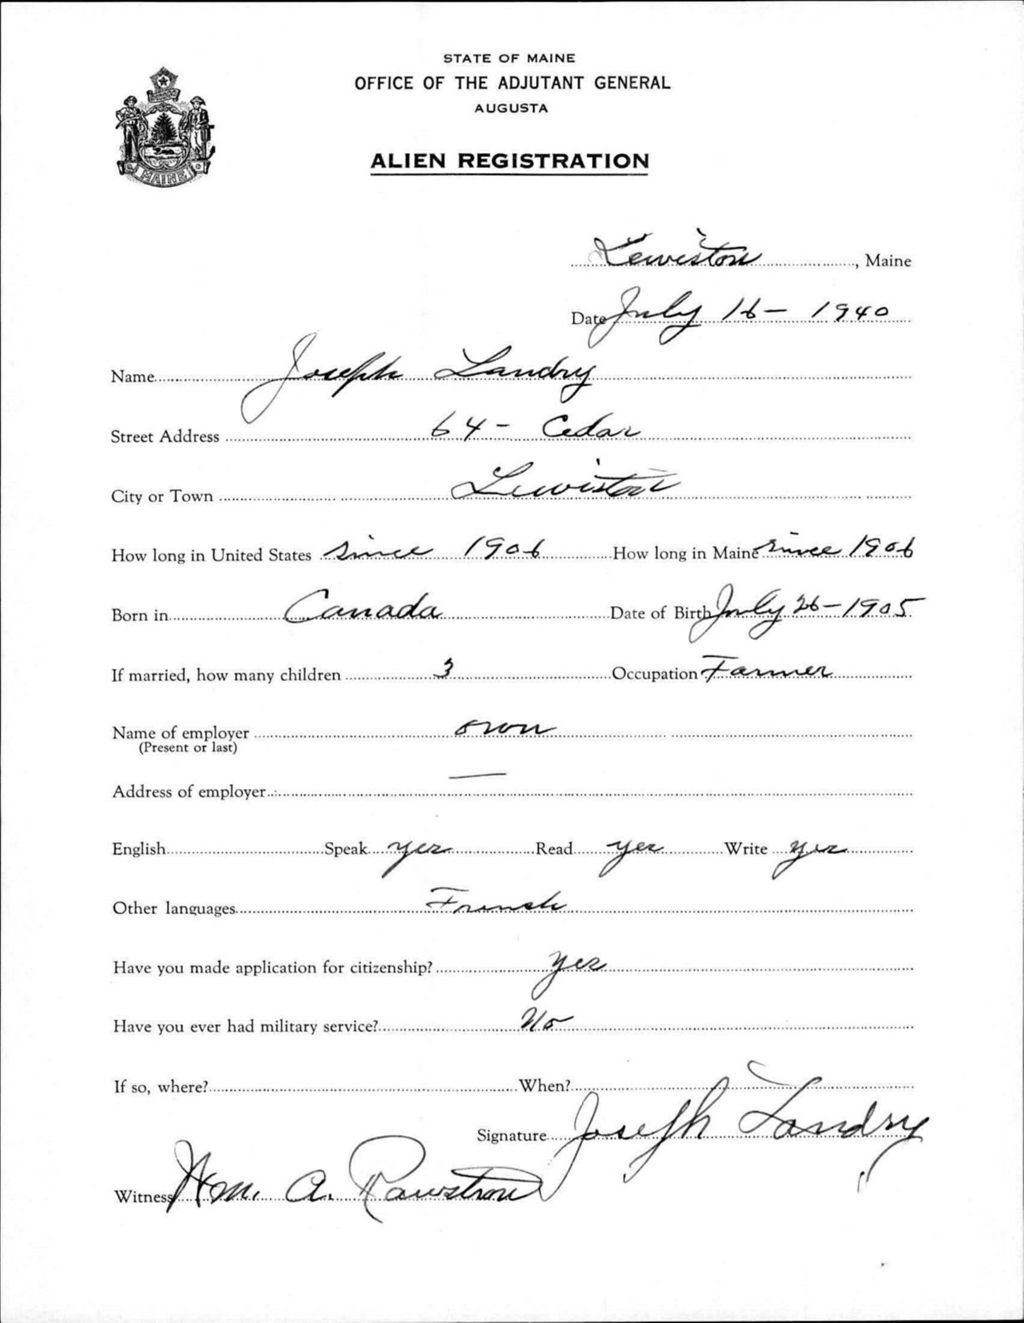 STATE OF MAINE
OFFICE OF THE ADJUTANT GENERAL
AUGUSTA
MAINE
ALIEN REGISTRATION
Lewiston, Maine
Date July 16 - 1940
Name Joseph Landry
Street Address 64 - Cedar
City or Town Lewiston
How long in United States since 1906 How long in Maine since 1906
Born in Canada Date of Birth July 26 - 1905
If married, how many children 3 Occupation Farmer
Name of employer own
(Present or last)
Address of employer —
English Speak yes Read yes Write yes
Other languages French
Have you made application for citizenship? yes
Have you ever had military service? No
If so, where? When?
Signature Joseph Landry
Witness Wm. A. Rawstron